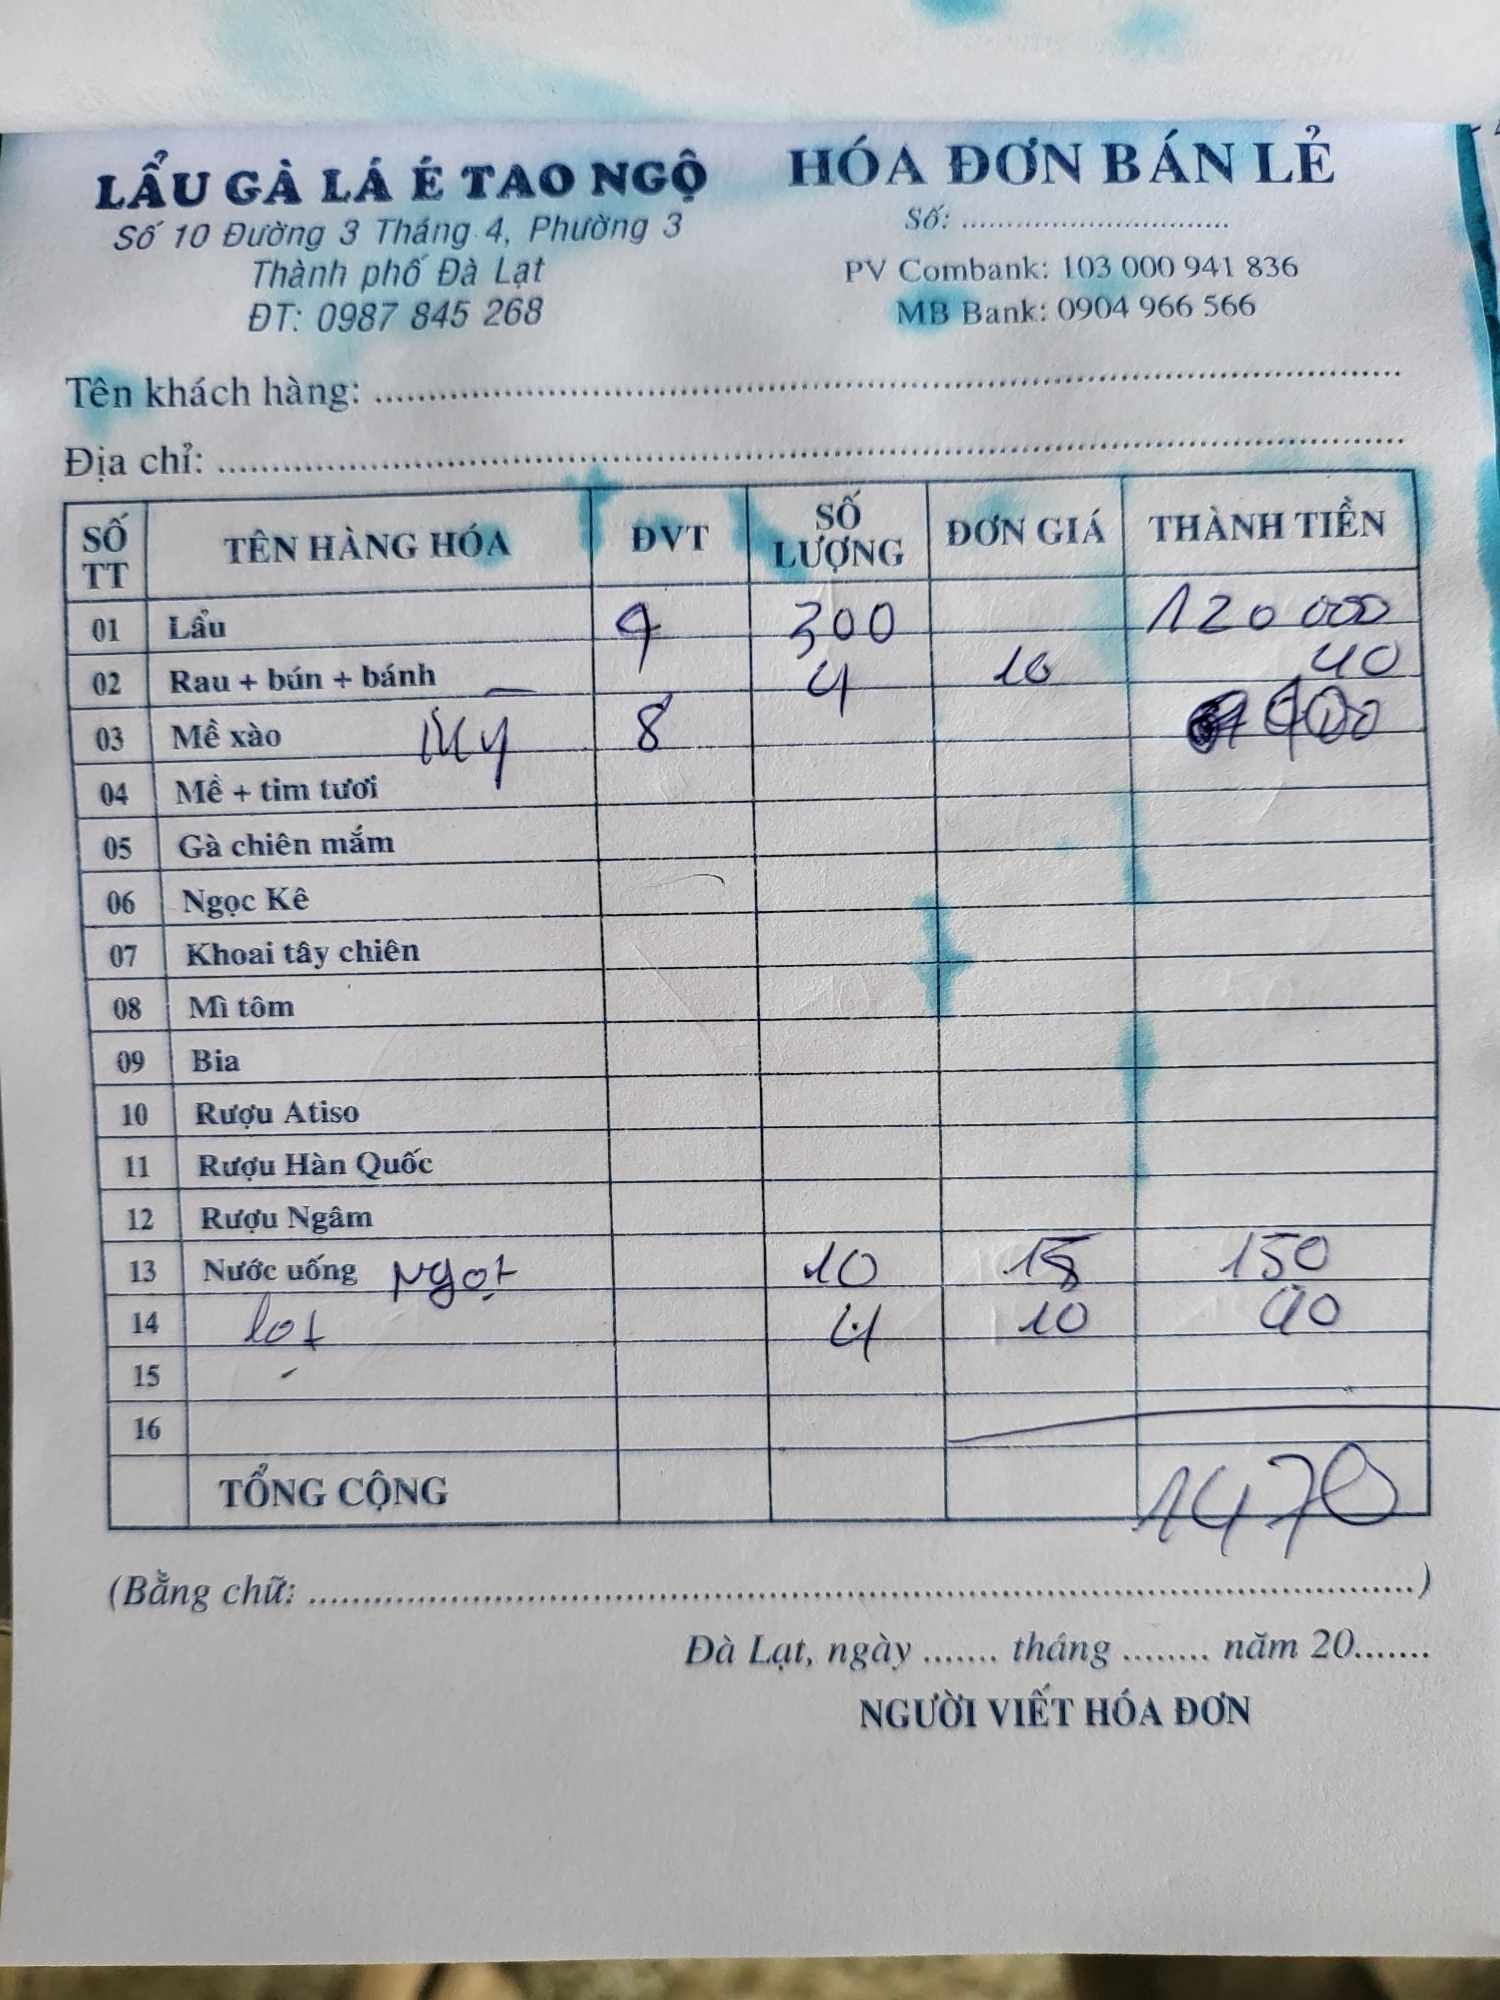 LẨU GÀ LÁ É TAO NGỘ
Số 10 Đường 3 Tháng 4, Phường 3
Thành phố Đà Lạt
ĐT: 0987 845 268
HÓA ĐƠN BÁN LẺ
Số: ..............................
PV Combank: 103 000 941 836
MB Bank: 0904 966 566
Tên khách hàng: ..............................
Địa chỉ: ..............................
SỐ TT TÊN HÀNG HÓA ĐVT SỐ LƯỢNG ĐƠN GIÁ THÀNH TIỀN
01 Lẩu 4 300 120 000
02 Rau + bún + bánh 4 10 40
03 Mề xào Mỳ 8
04 Mề + tim tươi
05 Gà chiên mắm
06 Ngọc Kê
07 Khoai tây chiên
08 Mì tôm
09 Bia
10 Rượu Atiso
11 Rượu Hàn Quốc
12 Rượu Ngâm
13 Nước uống Ngọt 10 15 150
14 lot 4 10 40
15
16
TỔNG CỘNG 1470
(Bằng chữ: ..............................)
Đà Lạt, ngày ....... tháng ........ năm 20.......
NGƯỜI VIẾT HÓA ĐƠN